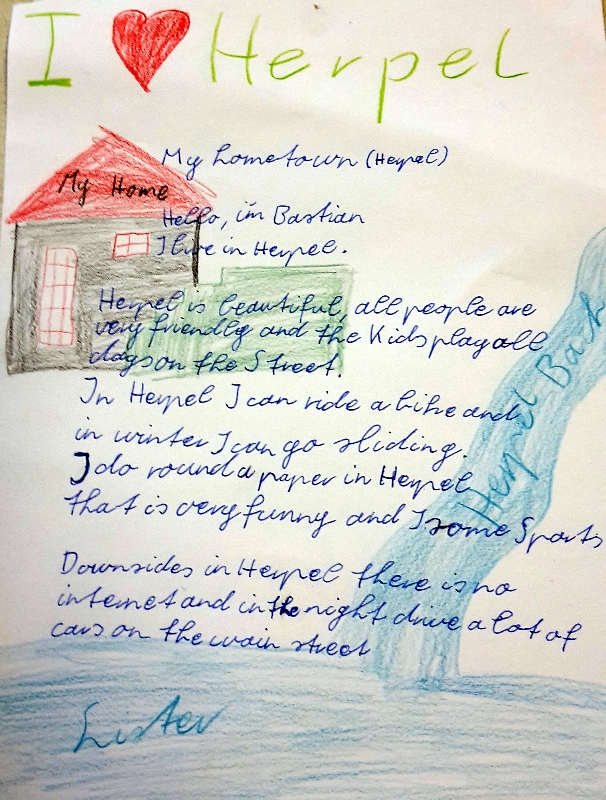 I ❤ Herpel
My hometown (Herpel)
My Home
Hello, i'm Bastian
I live in Herpel.
Herpel is beautiful, all people are
very friendly and the Kids play all
days on the Street.
In Herpel I can ride a bike and
in winter I can go sliding.
I do round a paper in Herpel
that is very funny and I some Sports
Downsides in Herpel there is no
internet and in the night drive a lot of
cars on the main street
Herpel Bach
Lister